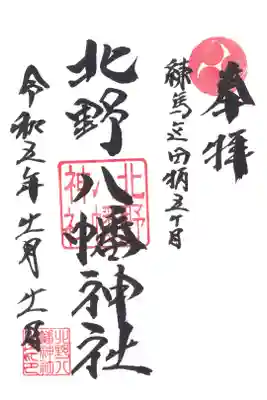 奉拝
練馬区田柄五丁目
北野八幡神社
令和五年十一月十一日
北野
八幡
神社
北野八
幡神社
之印